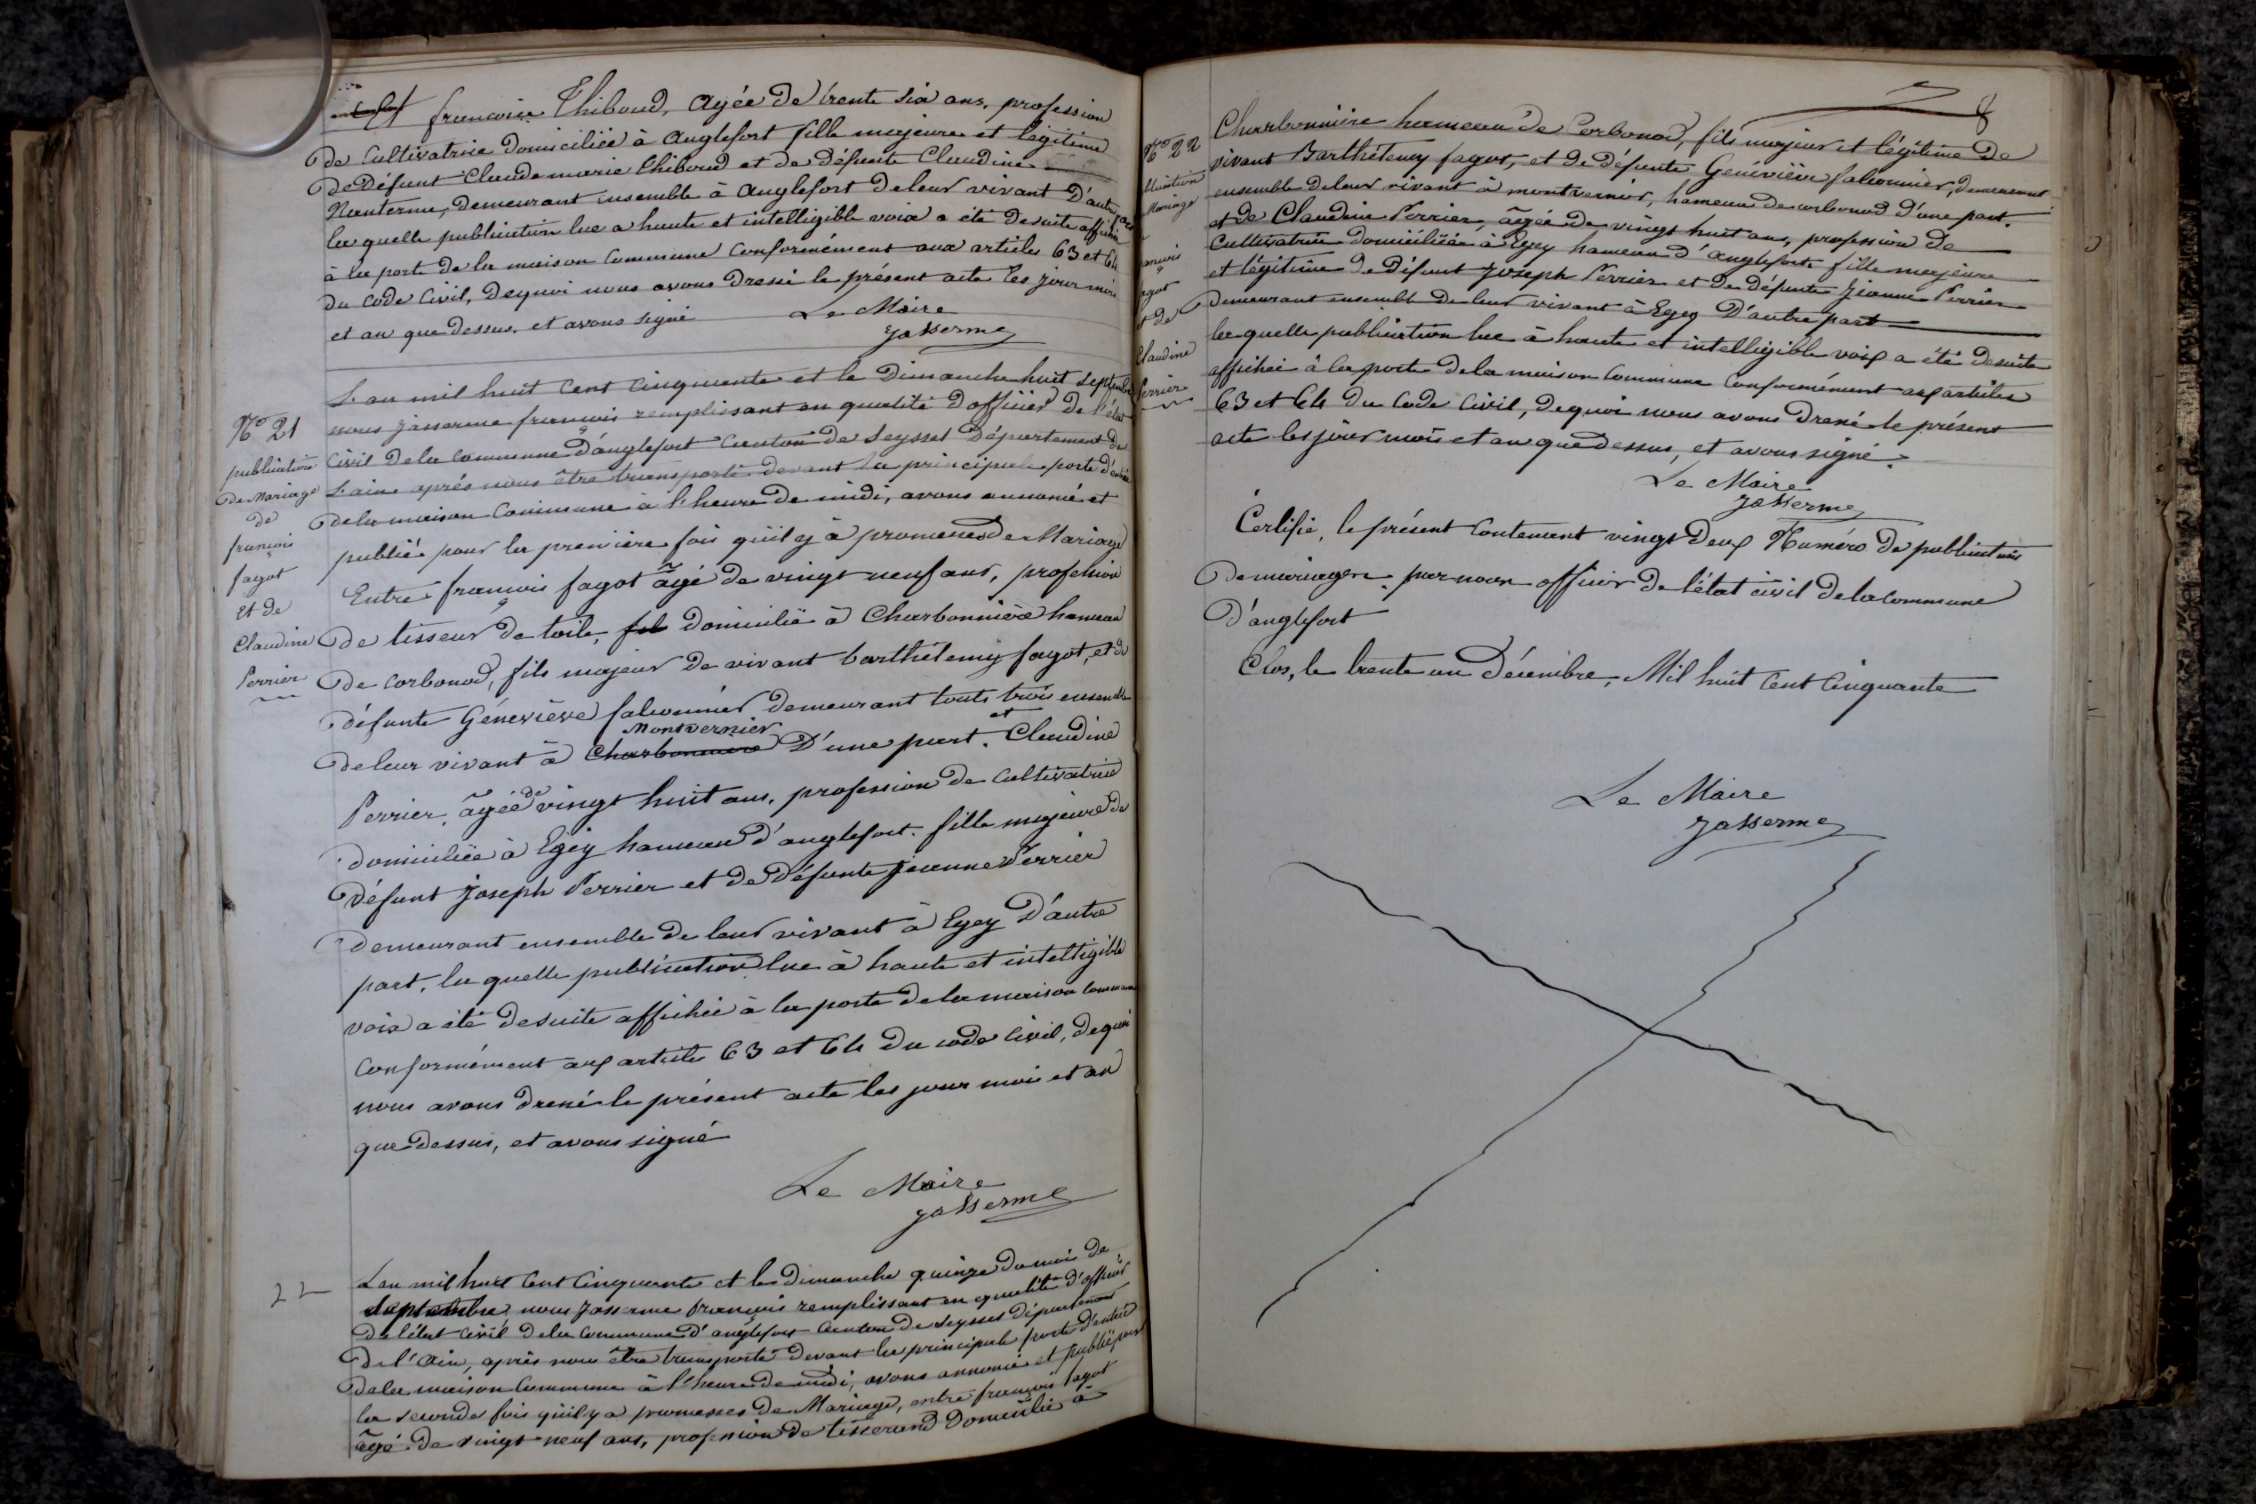 francoise Thiboud, agée de trente six ans, profession
de cultivatrice domiciliée à anglefort fille majeure et légitime
de défunt Claudemarie Thiboud et de défunte Claudine
Nanterme, demeurant ensemble à anglefort de leur vivant D'autre part
la quelle publication lue a haute et intelligible voix a été desuite affichée
à la porte de la maison commune conformément aux articles 63 et 64
du code civil, dequoi nous avons dressé le présent acte les jour mois
et an que dessus, et avons signé Le Maire
Jasserme
L'an mil huit cent cinquante et le Dimanche huit septembre
nous jasserme françois remplissant en qualité d'officier de l'état
civil dela commune d'anglefort canton de Seyssel département de
L'ain après nous être transporté devant la principale porte d'entrée
dela maison commune à l'heure de midi, avons annoncé et
publié pour la première fois qu'il y à promesses de Mariage
Entre françois fagot âgé de vingt neuf ans, profession
de tisseur de toile, fils domicilié à Charbonnière hameau
de corbonod, fils majeur de vivant barthélemy fagot, et de
défunte Généviève falconnier demeurant touts trois ensemble
deleur vivant à Charbonniere Montvernier D'une part. et Claudine
Perrier, âgée de vingt huit ans, profession de cultivatrice
domiciliée à Egey hameau d'anglefort. fille majeure de
défunt Joseph Perrier et de défunte Jeanne Perrier
demeurant ensemble de leur vivant à Egey D'autre
part, la quelle publication lue à haute et intelligible
voix a été desuite affichée à la porte dela maison commune
conformément aux article 63 et 64 du code civil, dequoi
nous avons dressé le présent acte les jour mois et an
que dessus, et avons signé
Le Maire
Jasserme
N° 21
publication
de Mariage
de
françois
fagot
Et de
Claudine
Perrier
22
L'an mil huit cent cinquante et le dimanche quinze du mois de
Septembre, nous Jasserme françois remplissant en qualité d'officier
de l'état civil dela commune d'anglefort canton de Seyssel département
de l'ain, après nous être transporté devant la principale porte d'entrée
dela maison commune à l'heure de midi, avons annoncé et publié pour
la seconde fois qu'il y a promesses de Mariage, entre françois fagot
âgé de vingt neuf ans, profession de tisserand domicilié à
8
Charbonnière hameau de Corbonod, fils majeur et légitime de
vivant Barthélemy fagot, et de défunte Généviève falconnier, demeurant
ensemble deleur vivant à montvernier, hameau de corbonod d'une part.
et de Claudine Perrier, âgée de vingt huit ans, profession de
cultivatrice domiciliée à Egey hameau d'anglefort fille majeure
et légitime de défunt Joseph Perrier et de défunte Jeanne Perrier
demeurant ensemble de leur vivant à Egey D'autre part
la quelle publication lue à haute et intelligible voix a été desuite
affichée à la porte dela maison commune conformément aux articles
63 et 64 du code civil, dequoi nous avons dressé le présent
acte les jour mois et an que dessus, et avons signé.
Le Maire
Jasserme
N° 22
Mariage
fagot
et de
Claudine
Perrier
Certifié, le présent contenant vingt deux Numéro de publication
de mariage, par nous officier de l'état civil dela commune
D'anglefort
Clos, le trente un Décembre, Mil huit cent cinquante
Le Maire
Jasserme